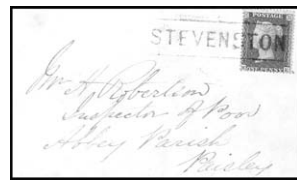 POSTAGE
STEVENSTON
ONE PENNY
Mr A Robertson
Inspector of Poor
Abbey Parish
Paisley